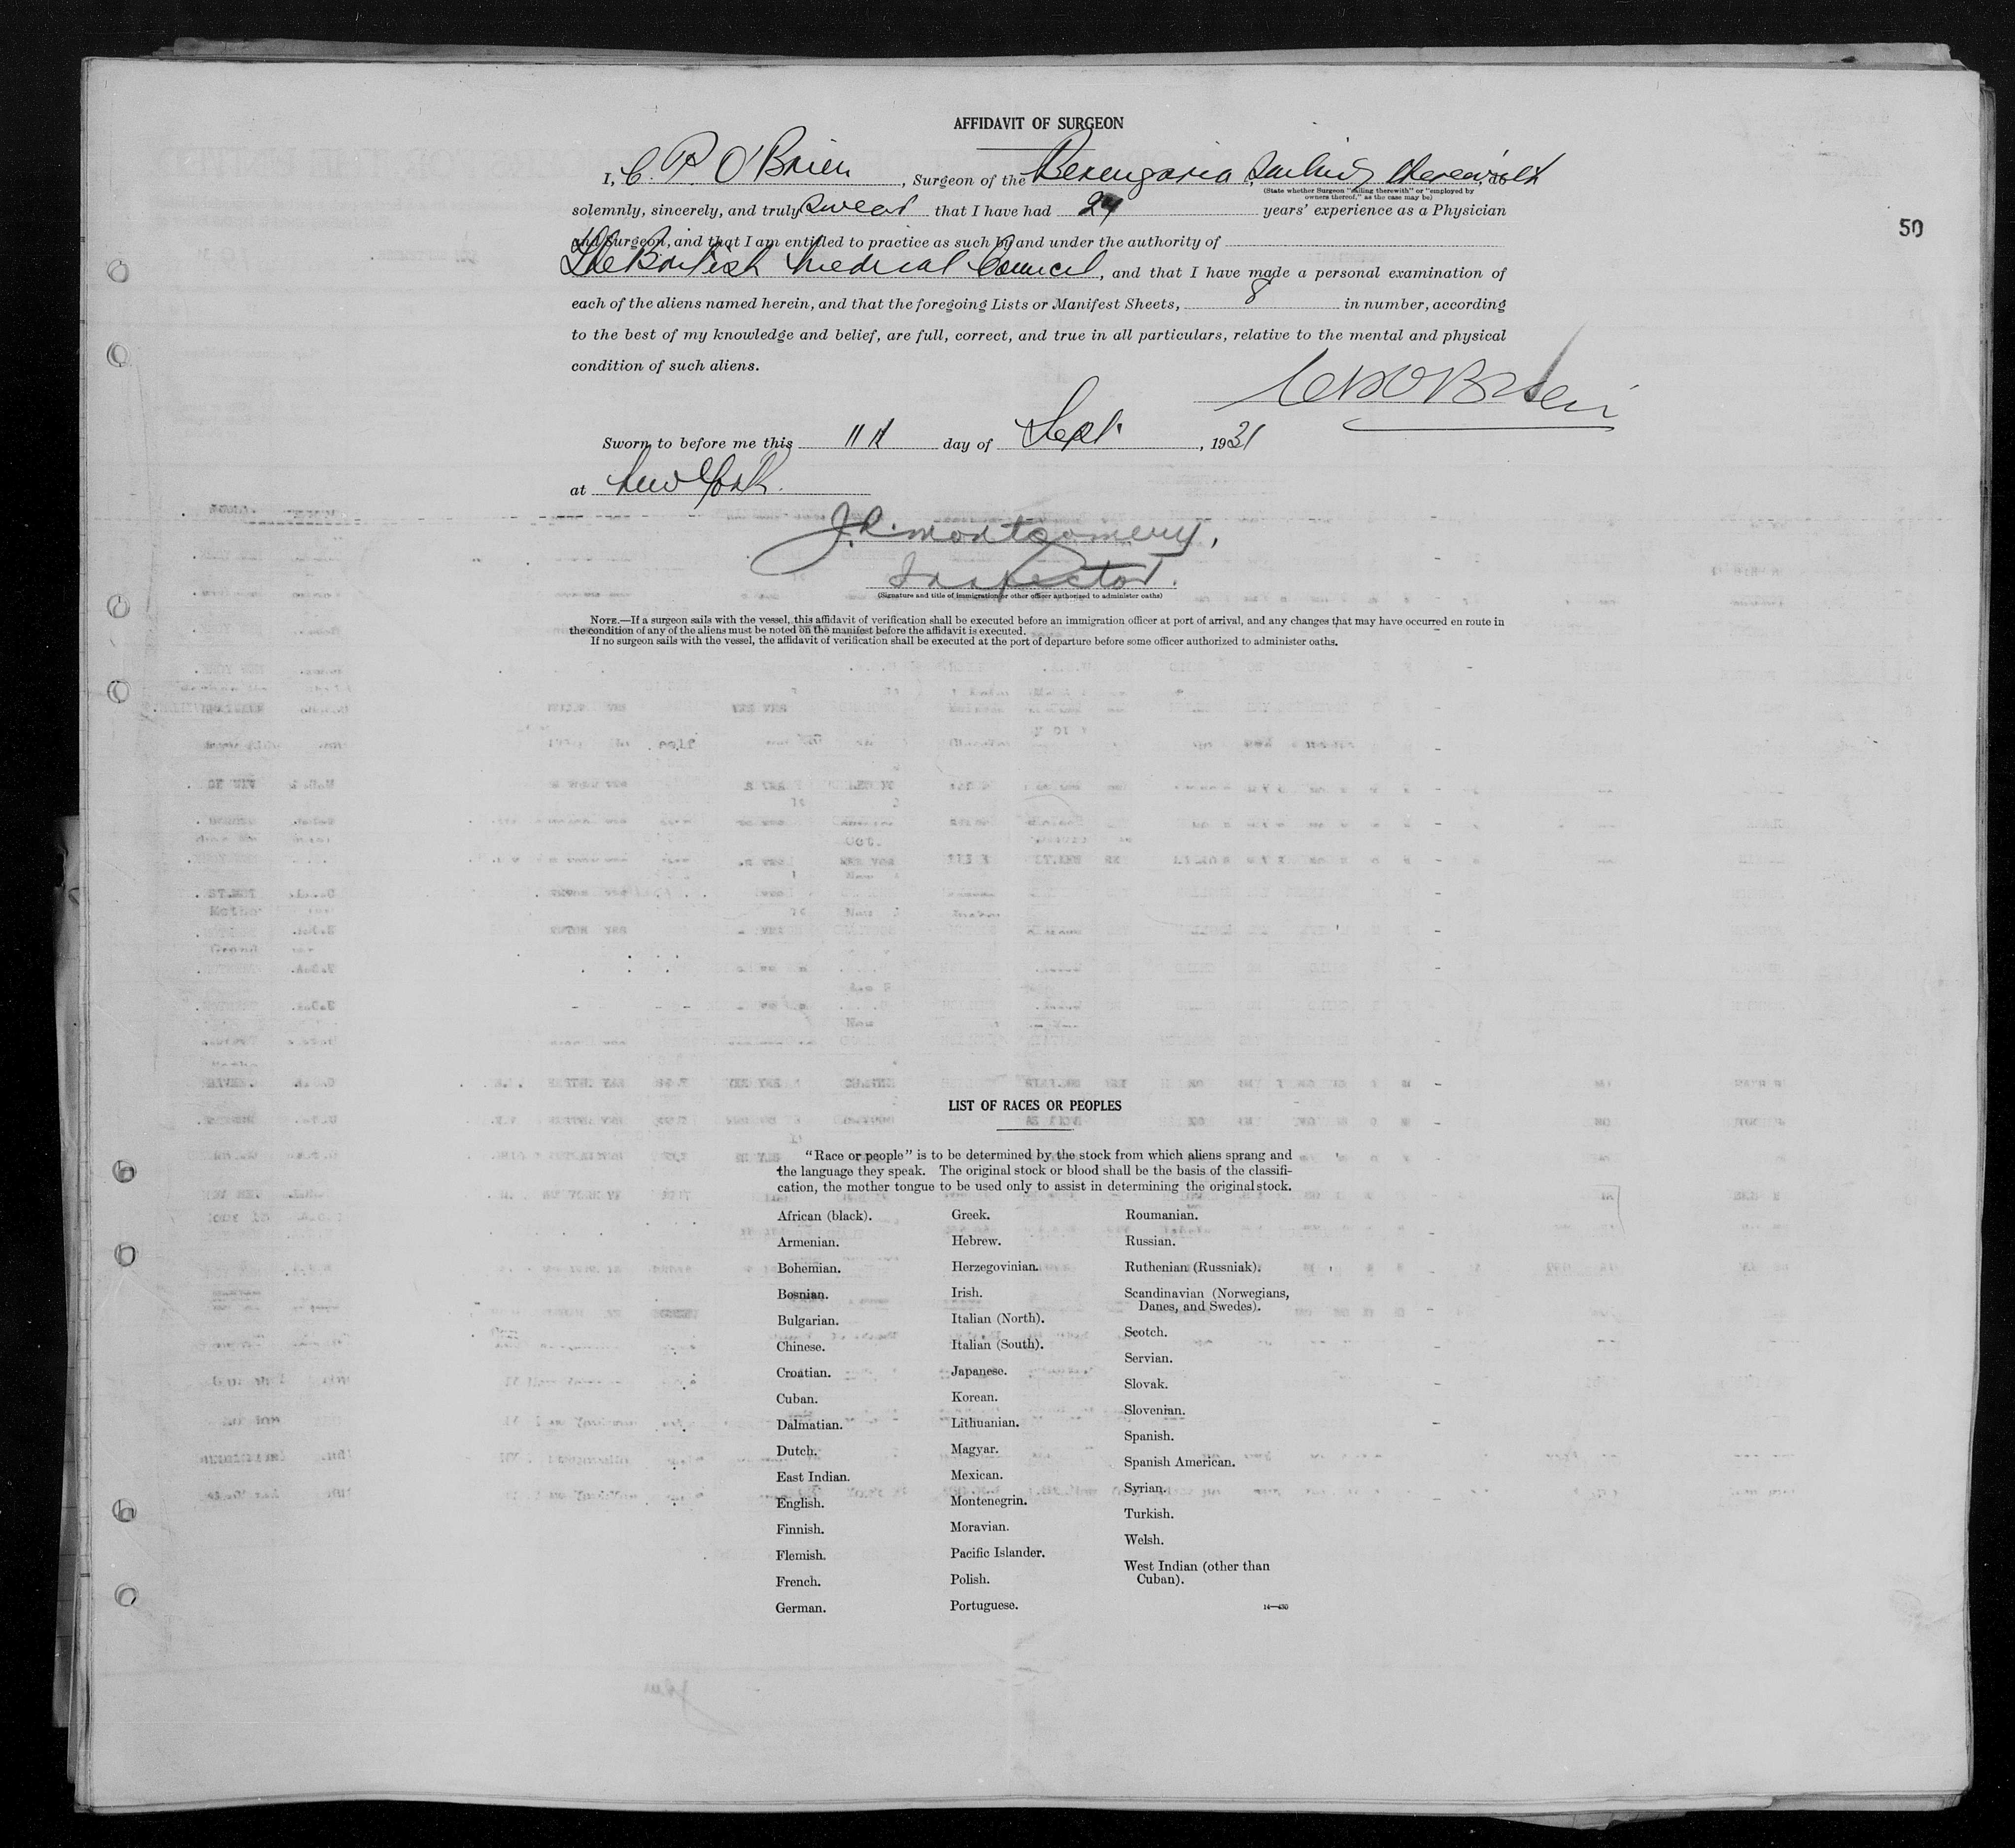 AFFIDAVIT OF SURGEON
I, C. P. O'Brien, Surgeon of the Berengaria, Sailing therewith, do
(State whether Surgeon "sailing therewith" or "employed by
owners thereof," as the case may be)
solemnly, sincerely, and truly swear that I have had 24 years' experience as a Physician
50
and Surgeon, and that I am entitled to practice as such by and under the authority of
The British Medical Council, and that I have made a personal examination of
each of the aliens named herein, and that the foregoing Lists or Manifest Sheets, 8 in number, according
to the best of my knowledge and belief, are full, correct, and true in all particulars, relative to the mental and physical
condition of such aliens.
C P O'Brien
Sworn to before me this 11 day of Sept., 1931
at New York.
J.R. Montgomery,
Inspector.
(Signature and title of immigration or other officer authorized to administer oaths)
NOTE.—If a surgeon sails with the vessel, this affidavit of verification shall be executed before an immigration officer at port of arrival, and any changes that may have occurred en route in
the condition of any of the aliens must be noted on the manifest before the affidavit is executed.
If no surgeon sails with the vessel, the affidavit of verification shall be executed at the port of departure before some officer authorized to administer oaths.
LIST OF RACES OR PEOPLES
"Race or people" is to be determined by the stock from which aliens sprang and
the language they speak. The original stock or blood shall be the basis of the classifi-
cation, the mother tongue to be used only to assist in determining the original stock.
African (black).
Armenian.
Bohemian.
Bosnian.
Bulgarian.
Chinese.
Croatian.
Cuban.
Dalmatian.
Dutch.
East Indian.
English.
Finnish.
Flemish.
French.
German.
Greek.
Hebrew.
Herzegovinian.
Irish.
Italian (North).
Italian (South).
Japanese.
Korean.
Lithuanian.
Magyar.
Mexican.
Montenegrin.
Moravian.
Pacific Islander.
Polish.
Portuguese.
Roumanian.
Russian.
Ruthenian (Russniak).
Scandinavian (Norwegians,
Danes, and Swedes).
Scotch.
Servian.
Slovak.
Slovenian.
Spanish.
Spanish American.
Syrian.
Turkish.
Welsh.
West Indian (other than
Cuban).
14—430